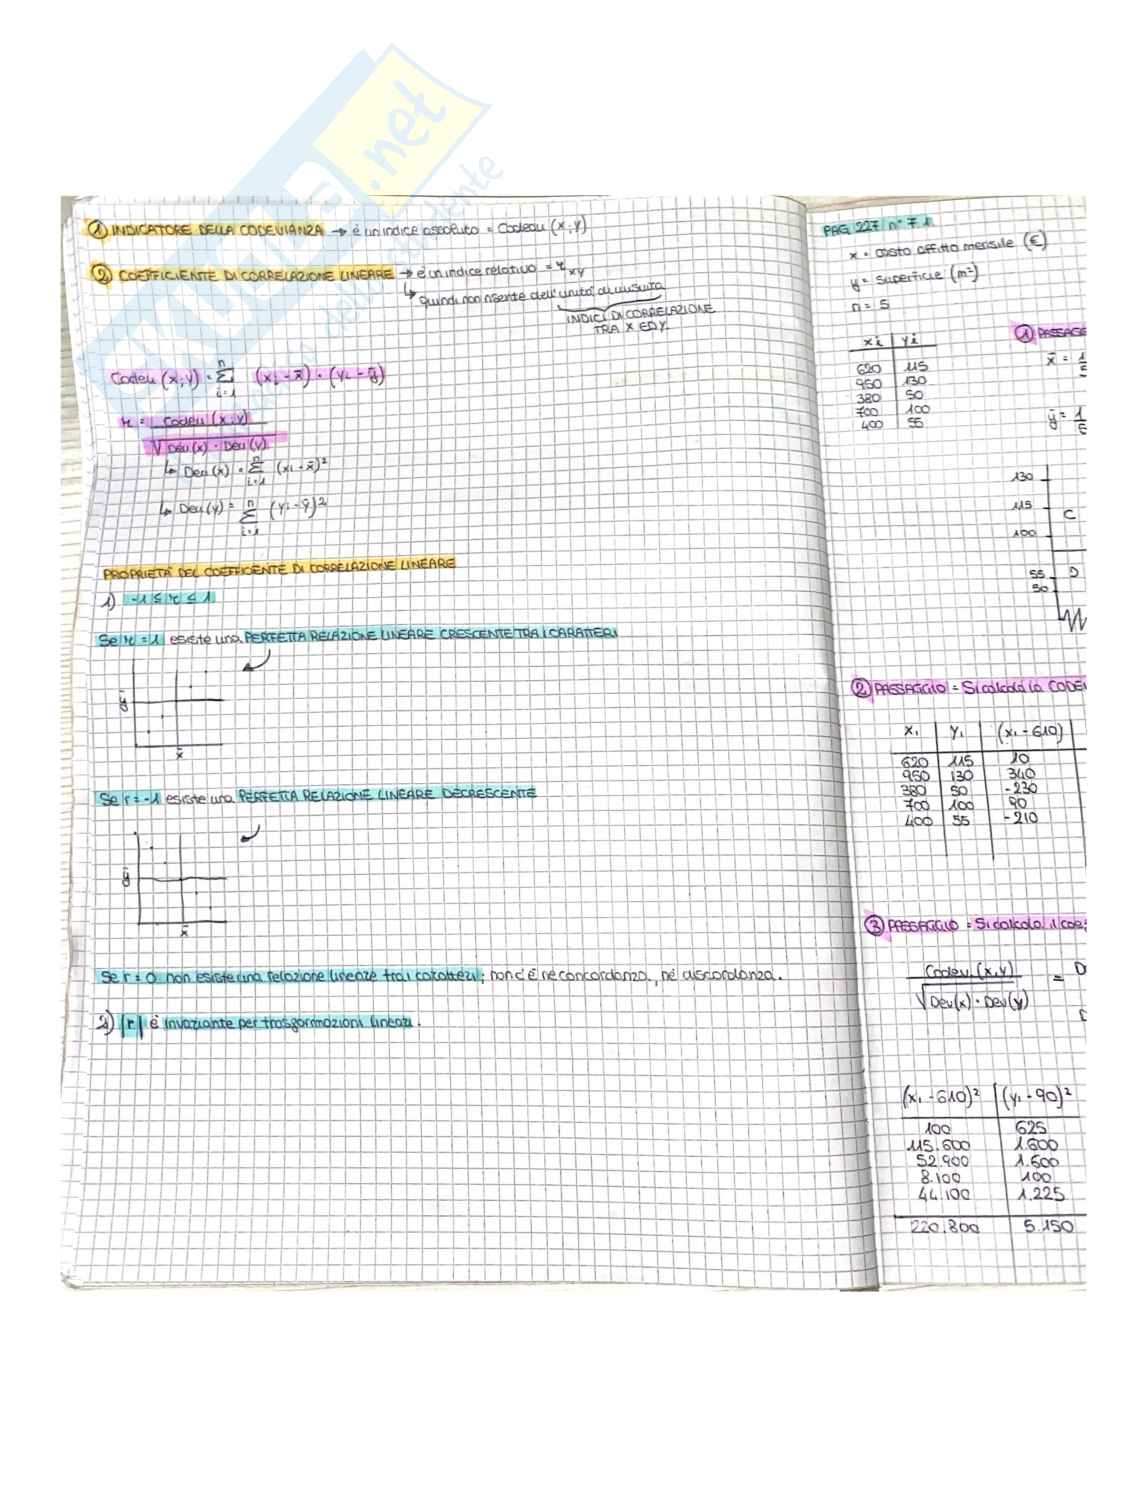 ① INDICATORE DELLA CODEVIANZA → è un indice assoluto = Codev (x,y)
② COEFFICIENTE DI CORRELAZIONE LINEARE → è un indice relativo = r xy
↳ quindi non risente dell'unità di misura
INDICI DI CORRELAZIONE
TRA X ED Y.
Codev (x,y) = n Σ i=1 (xi - x̄) · (yi - ȳ)
r = Codev (x,y)
√Dev(x) · Dev(y)
↳ Dev(x) = n Σ i=1 (xi - x̄)²
↳ Dev(y) = n Σ i=1 (yi - ȳ)²
PROPRIETÀ DEL COEFFICIENTE DI CORRELAZIONE LINEARE
1) -1 ≤ r ≤ 1
Se r = 1 esiste una PERFETTA RELAZIONE LINEARE CRESCENTE TRA I CARATTERI
ȳ
x̄
Se r = -1 esiste una PERFETTA RELAZIONE LINEARE DECRESCENTE
ȳ
x̄
Se r = 0 non esiste una relazione lineare tra i caratteri; non c'è né concordanza, né discordanza.
2) |r| è invariante per trasformazioni lineari.
PAG 227 n° 7.1
x = costo affitto mensile (€)
y = superficie (m²)
n = 5
xi yi
620 115
950 130
380 50
700 100
400 55
① PASSAGG
x̄ = 1
5
ȳ = 1
5
130
115
C
100
55 D
50
② PASSAGGIO = Si calcola la CODEV
xi yi (xi - 610)
620 115 10
950 130 340
380 50 -230
700 100 90
400 55 -210
③ PASSAGGIO = Si calcola il coe
Codev. (x,y) =
√Dev(x) · Dev(y)
(xi - 610)² (yi - 90)²
100 625
115.600 1.600
52.900 1.600
8.100 100
44.100 1.225
220.800 5.150
.net